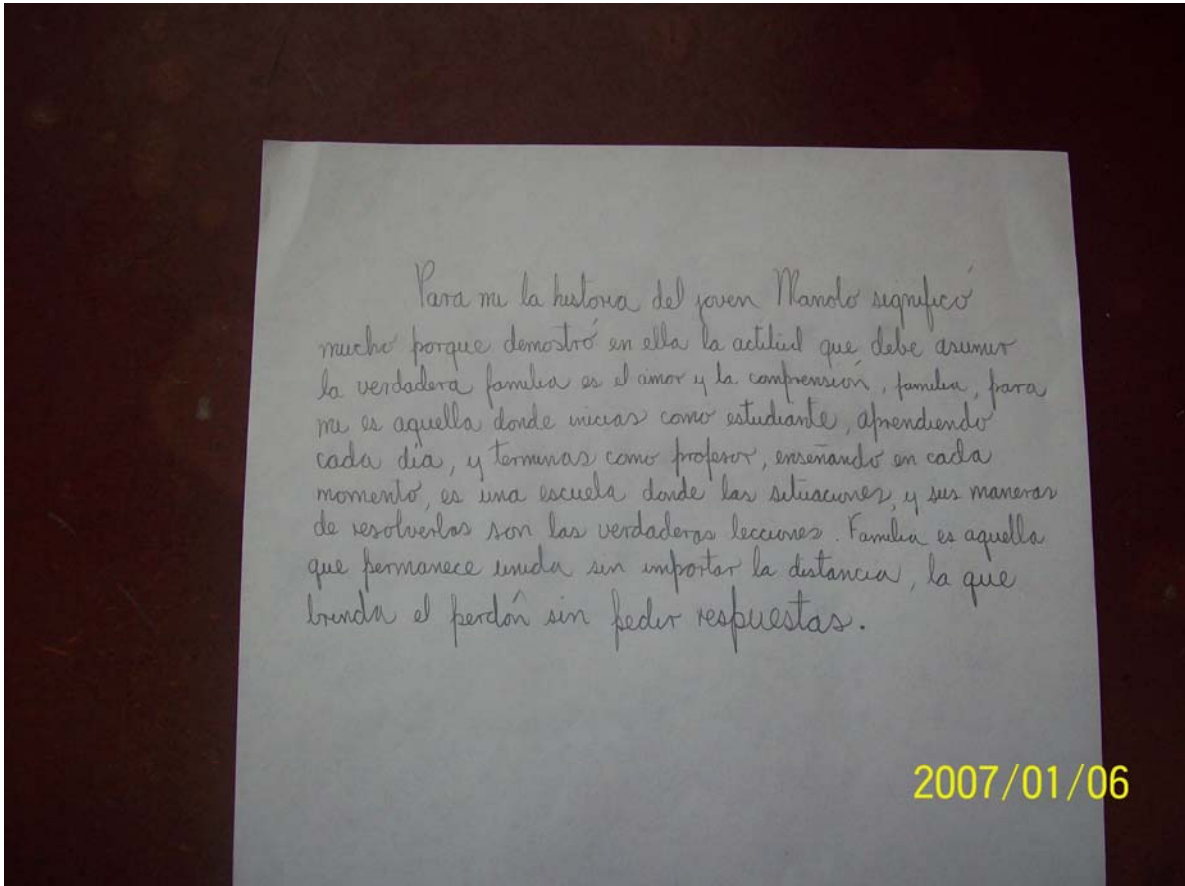 Para mi la historia del joven Manolo significó
mucho porque demostró en ella la actitud que debe asumir
la verdadera familia es el amor y la comprensión, familia, para
mi es aquella donde inicias como estudiante, aprendiendo
cada día, y terminas como profesor, enseñando en cada
momento, es una escuela donde las situaciones, y sus maneras
de resolverlas son las verdaderas lecciones. Familia es aquella
que permanece unida sin importar la distancia, la que
brinda el perdón sin pedir respuestas.
2007/01/06